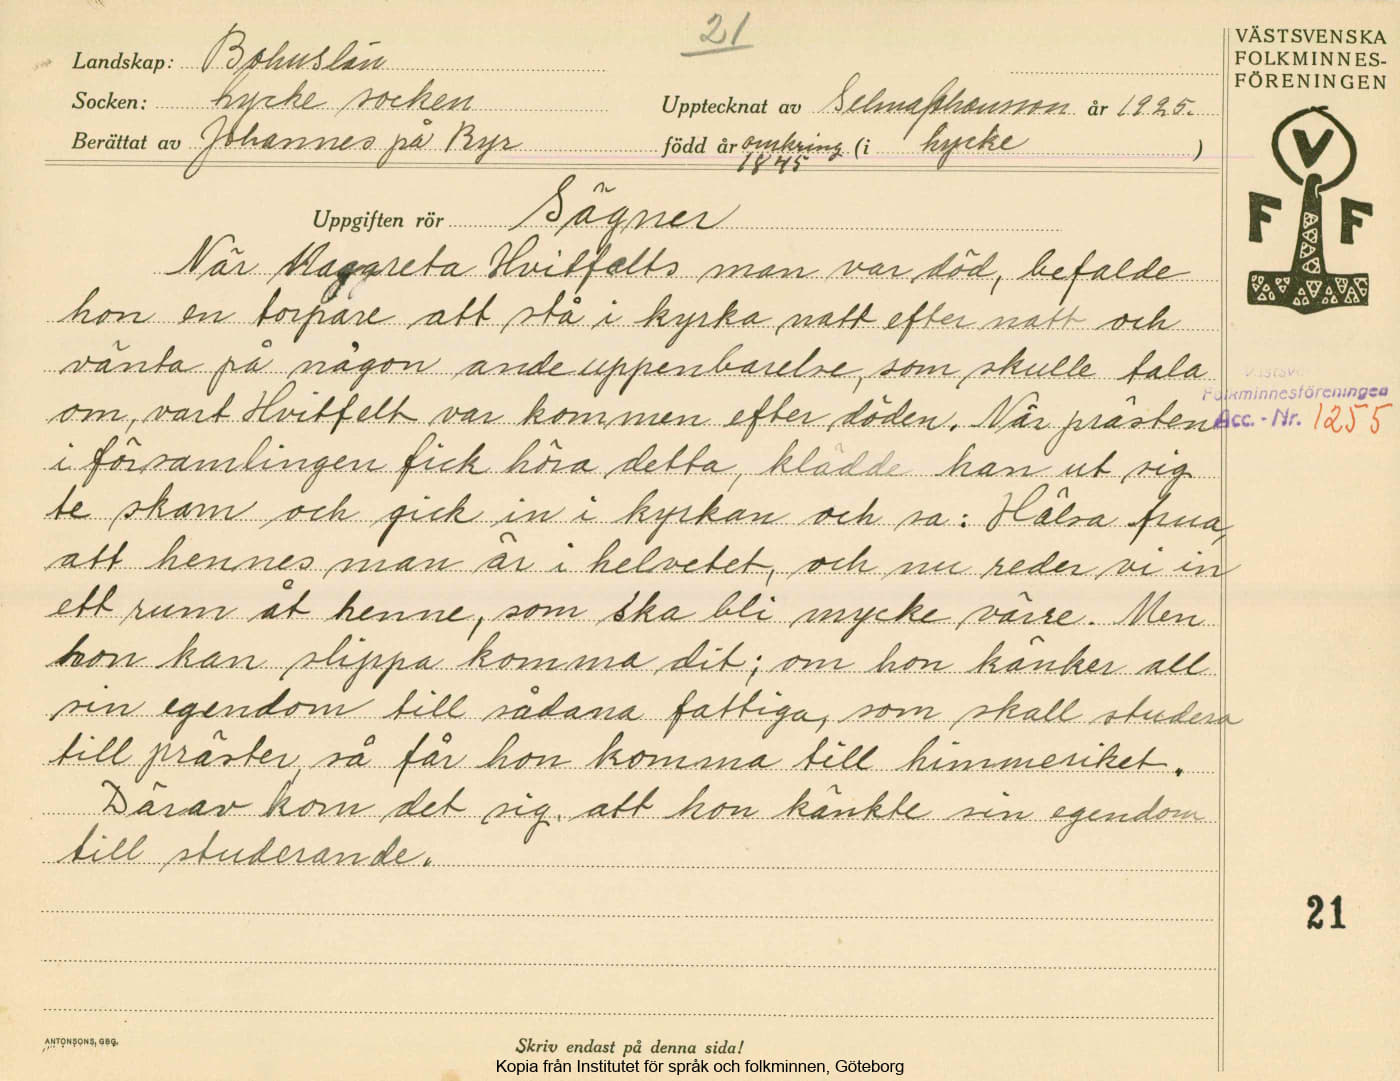 21
VÄSTSVENSKA
FOLKMINNES-
FÖRENINGEN
Landskap: Bohuslän
Socken: Lycke socken
Upptecknat av Selma Johansson år 1925.
Berättat av Johannes på Ryr
född år omkring 1845 (i Lycke)
V
F F
Uppgiften rör Sägner
När Maggreta Hvitfelts man var död, befalde
hon en torpare att stå i kyrka natt efter natt och
vänta på någon ande uppenbarelse, som skulle tala
om, vart Hvitfelt var kommen efter döden. När prästen
i församlingen fick höra detta, klädde han ut sig
te skam och gick in i kyrkan och sa: Hälsa frua,
att hennes man är i helvetet, och nu reder vi in
ett rum åt henne, som ska bli mycke värre. Men
hon kan slippa komma dit; om hon känker all
sin egendom till sådana fattiga, som skall studera
till präster, så får hon komma till himmeriket.
Därav kom det sig, att hon känkte sin egendom
till studerande.
Västsv
Folkminnesföreningen
Acc. - Nr. 1255
21
ANTONSONS, GBG.
Skriv endast på denna sida!
Kopia från Institutet för språk och folkminnen, Göteborg